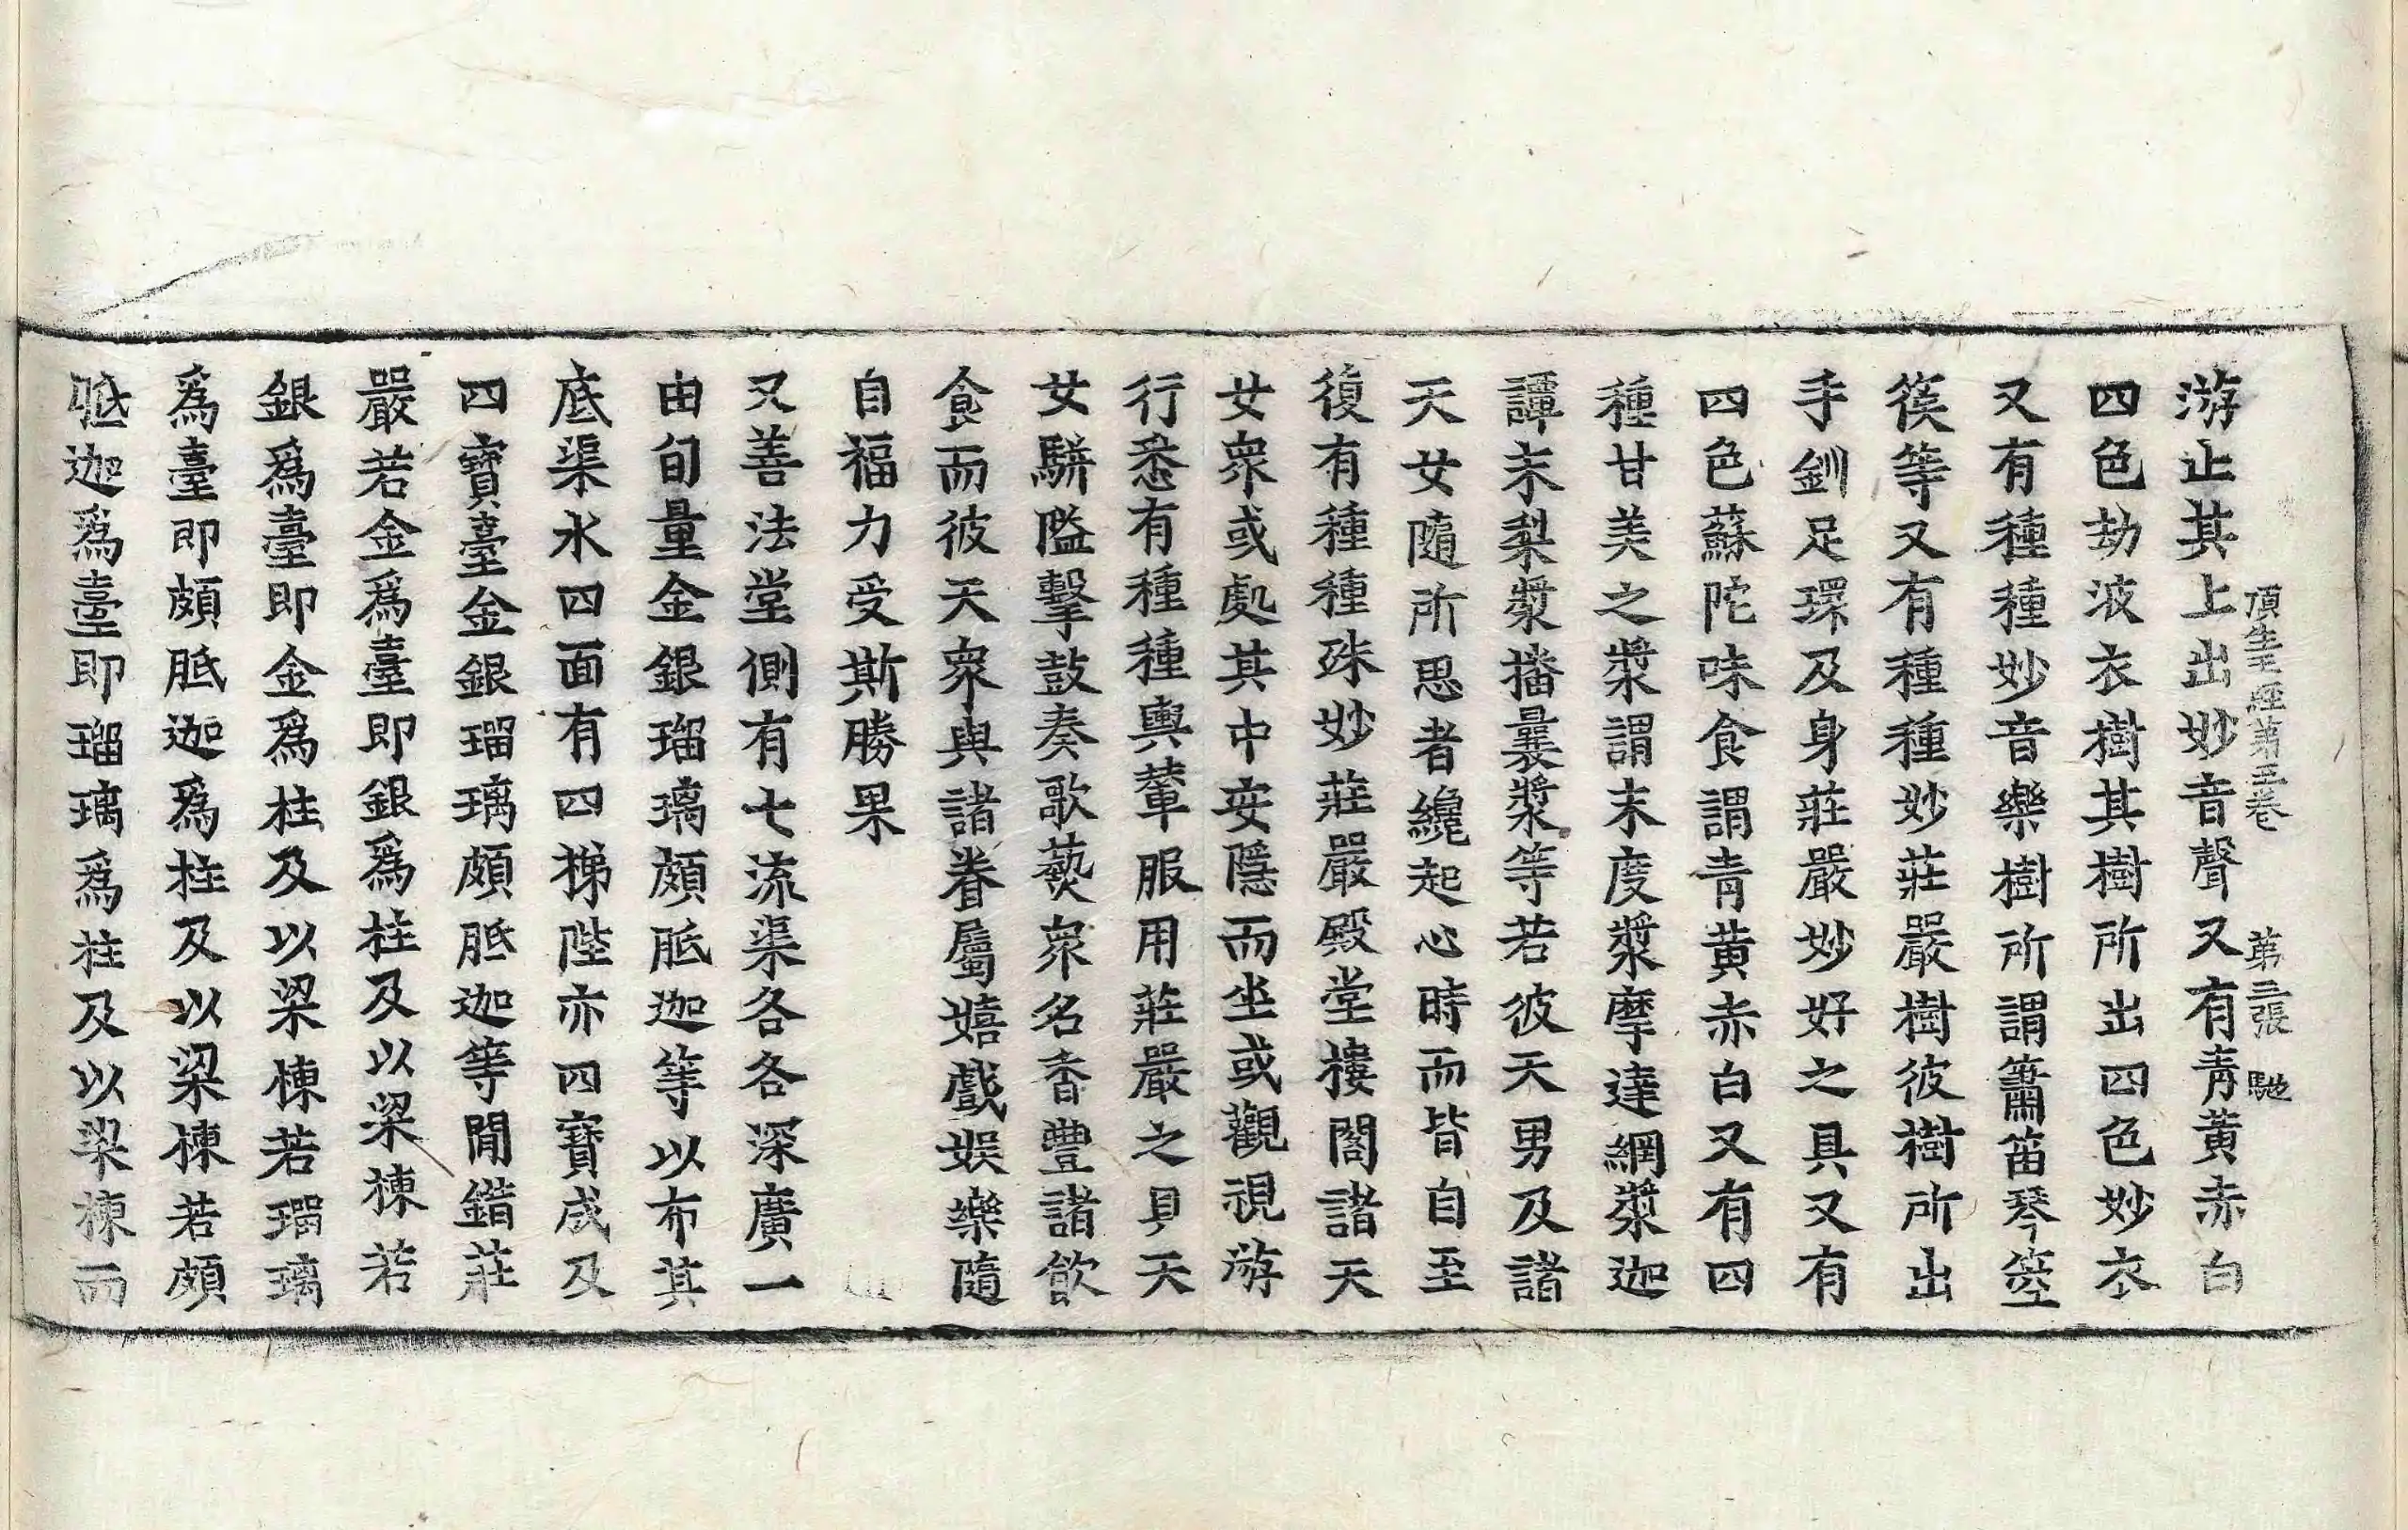 頂生王經第三卷　第二張　馳
游止其上出妙音聲又有青黃赤白
四色劫波衣樹其樹所出四色妙衣
又有種種妙音樂樹所謂簫笛琴箜
篌等又有種種妙莊嚴樹彼樹所出
手釧足環及身莊嚴妙好之具又有
四色蘇陀味食謂青黃赤白又有四
種甘美之漿謂末度漿摩達網漿迦
譚末梨漿播曩漿等若彼天男及諸
天女隨所思者纔起心時而皆自至
復有種種殊妙莊嚴殿堂樓閣諸天
女衆或處其中安隱而坐或觀視游
行悉有種種輿輦服用莊嚴之具天
女騈隘擊鼓奏歌藝衆名香豐諸飲
食而彼天衆與諸眷屬嬉戲娛樂隨
自福力受斯勝果
又善法堂側有七流渠各各深廣一
由旬量金銀瑠璃頗胝迦等以布其
底渠水四面有四梯陛亦四寶成及
四寶臺金銀瑠璃頗胝迦等閒錯莊
嚴若金爲臺即銀爲柱及以梁棟若
銀爲臺即金爲柱及以梁棟若瑠璃
爲臺即頗胝迦爲柱及以梁棟若頗
胝迦爲臺即瑠璃爲柱及以梁棟而